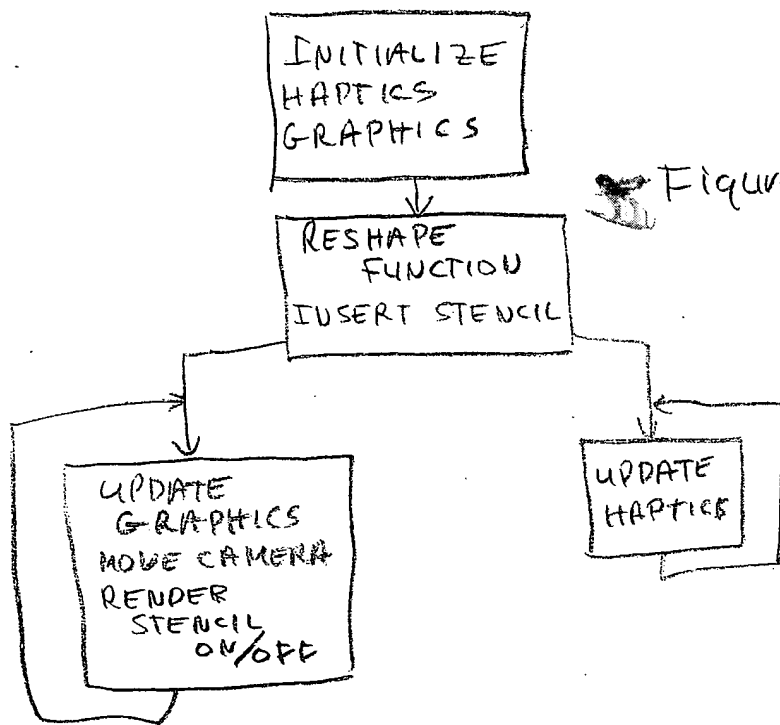 INITIALIZE
HAPTICS
GRAPHICS
Figur
RESHAPE
FUNCTION
INSERT STENCIL
UPDATE
GRAPHICS
MOVE CAMERA
RENDER
STENCIL
ON/OFF
UPDATE
HAPTICS